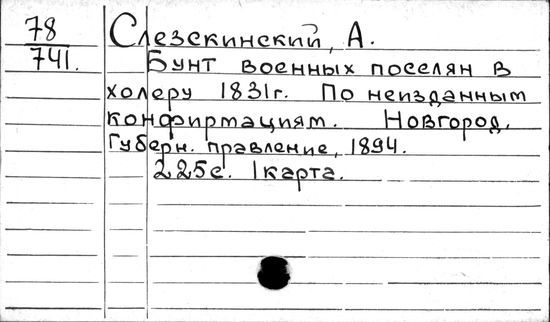 78
741.
Слезскинский, А.
Бунт военных поселян в
холеру 1831г. По неизданным
конфирмациям. Новгород,
Губерн. правление, 1894.
225с. 1карта.